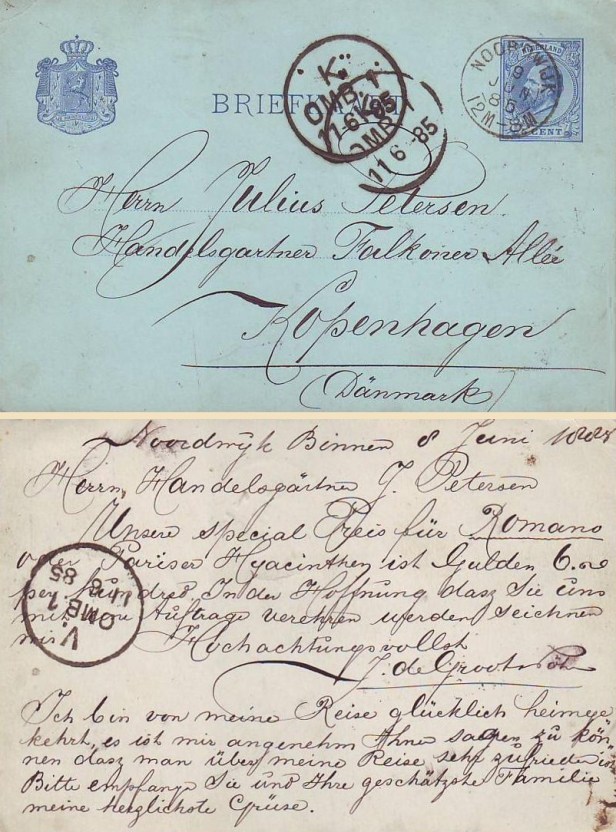 BRIEFKAART
NEDERLAND
5 CENT
NOORDWIJK
9
JUN
85
12M-8M
K.
OMB.1
11 6 85
OMB.1
11 6 85
Herrn Julius Petersen.
Handelsgartner Falkoner Allée
Kopenhagen
(Dänmark)
Noordwijk Binnen 8 Juni 1885
Herrn, Handelsgärtner J. Petersen
Unsere special Preis für Romano
oder Pariser Hyacinthen ist Gulden 6.00
per hundred. In der Hoffnung dasz Sie uns
mit Aufträge verehren werden zeichnen
wir Hochachtungsvollst
J. de Groot
V.
OMB.1
11 6
85
Ich bin von meine Reise glücklich heimge
kehrt, es ist mir angenehm Ihne sagen zu kön
nen dasz man über meine Reise sehr zufrieden is
Bitte empfange Sie und Ihre geschätzste Familie
meine herzlichste Grüse.